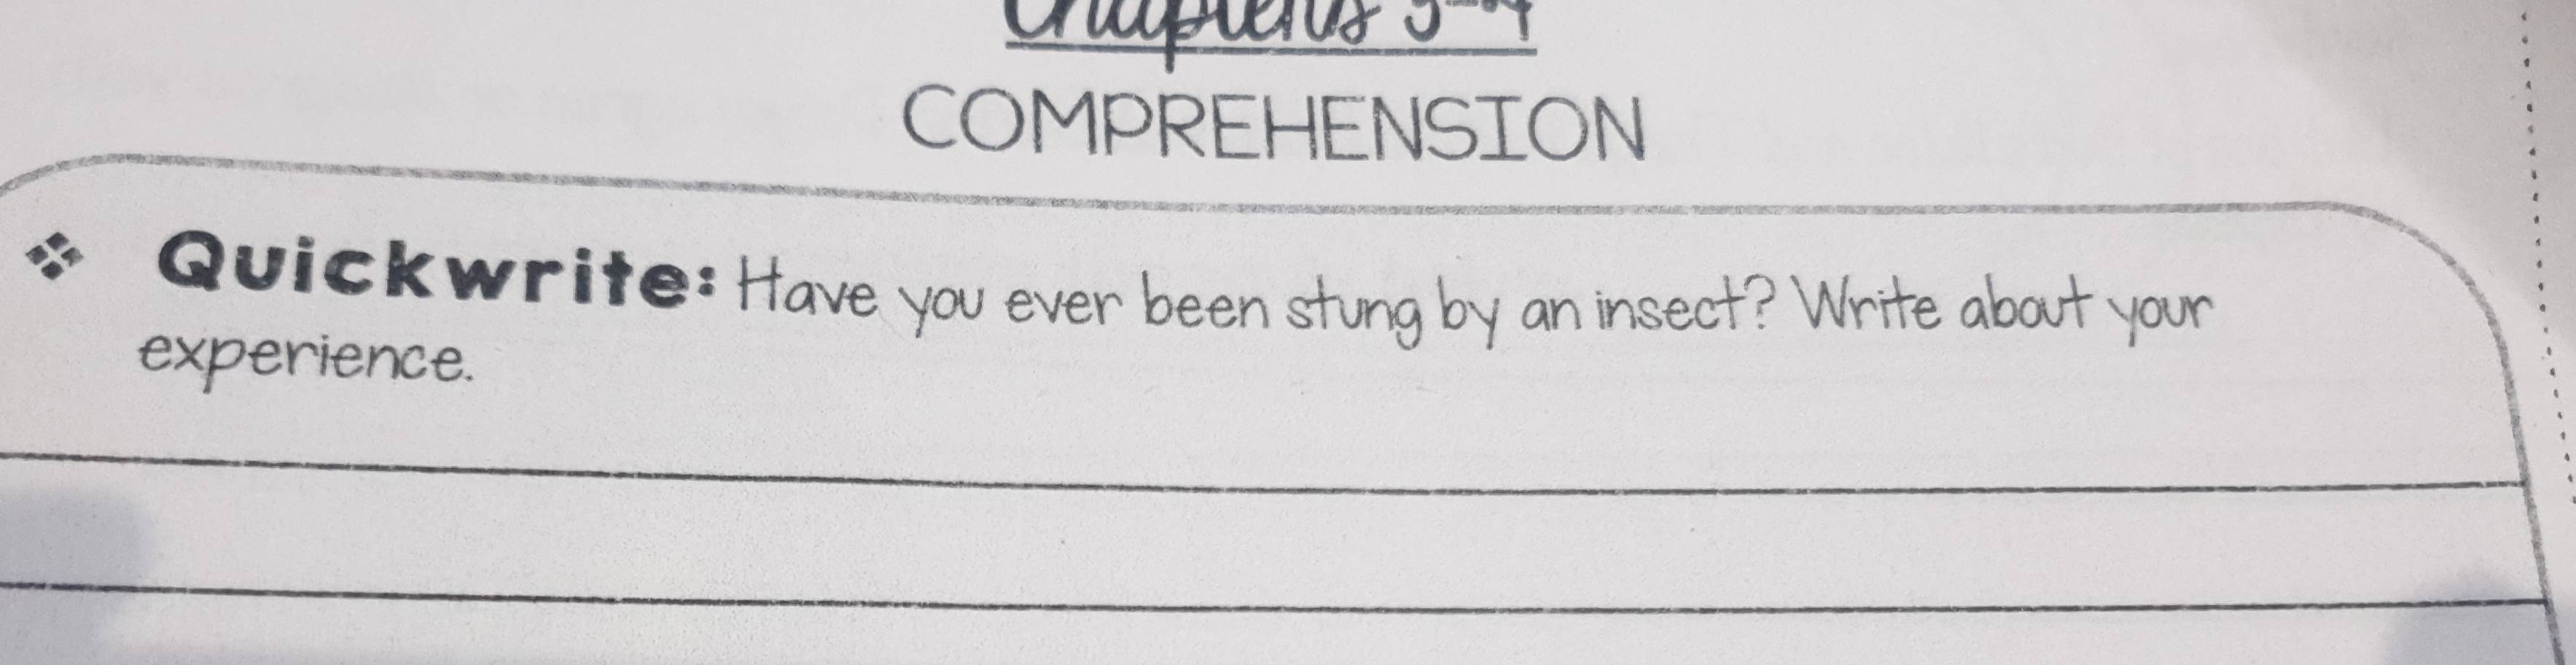 Chapters 3-4
COMPREHENSION
❖ Quickwrite: Have you ever been stung by an insect? Write about your
experience.